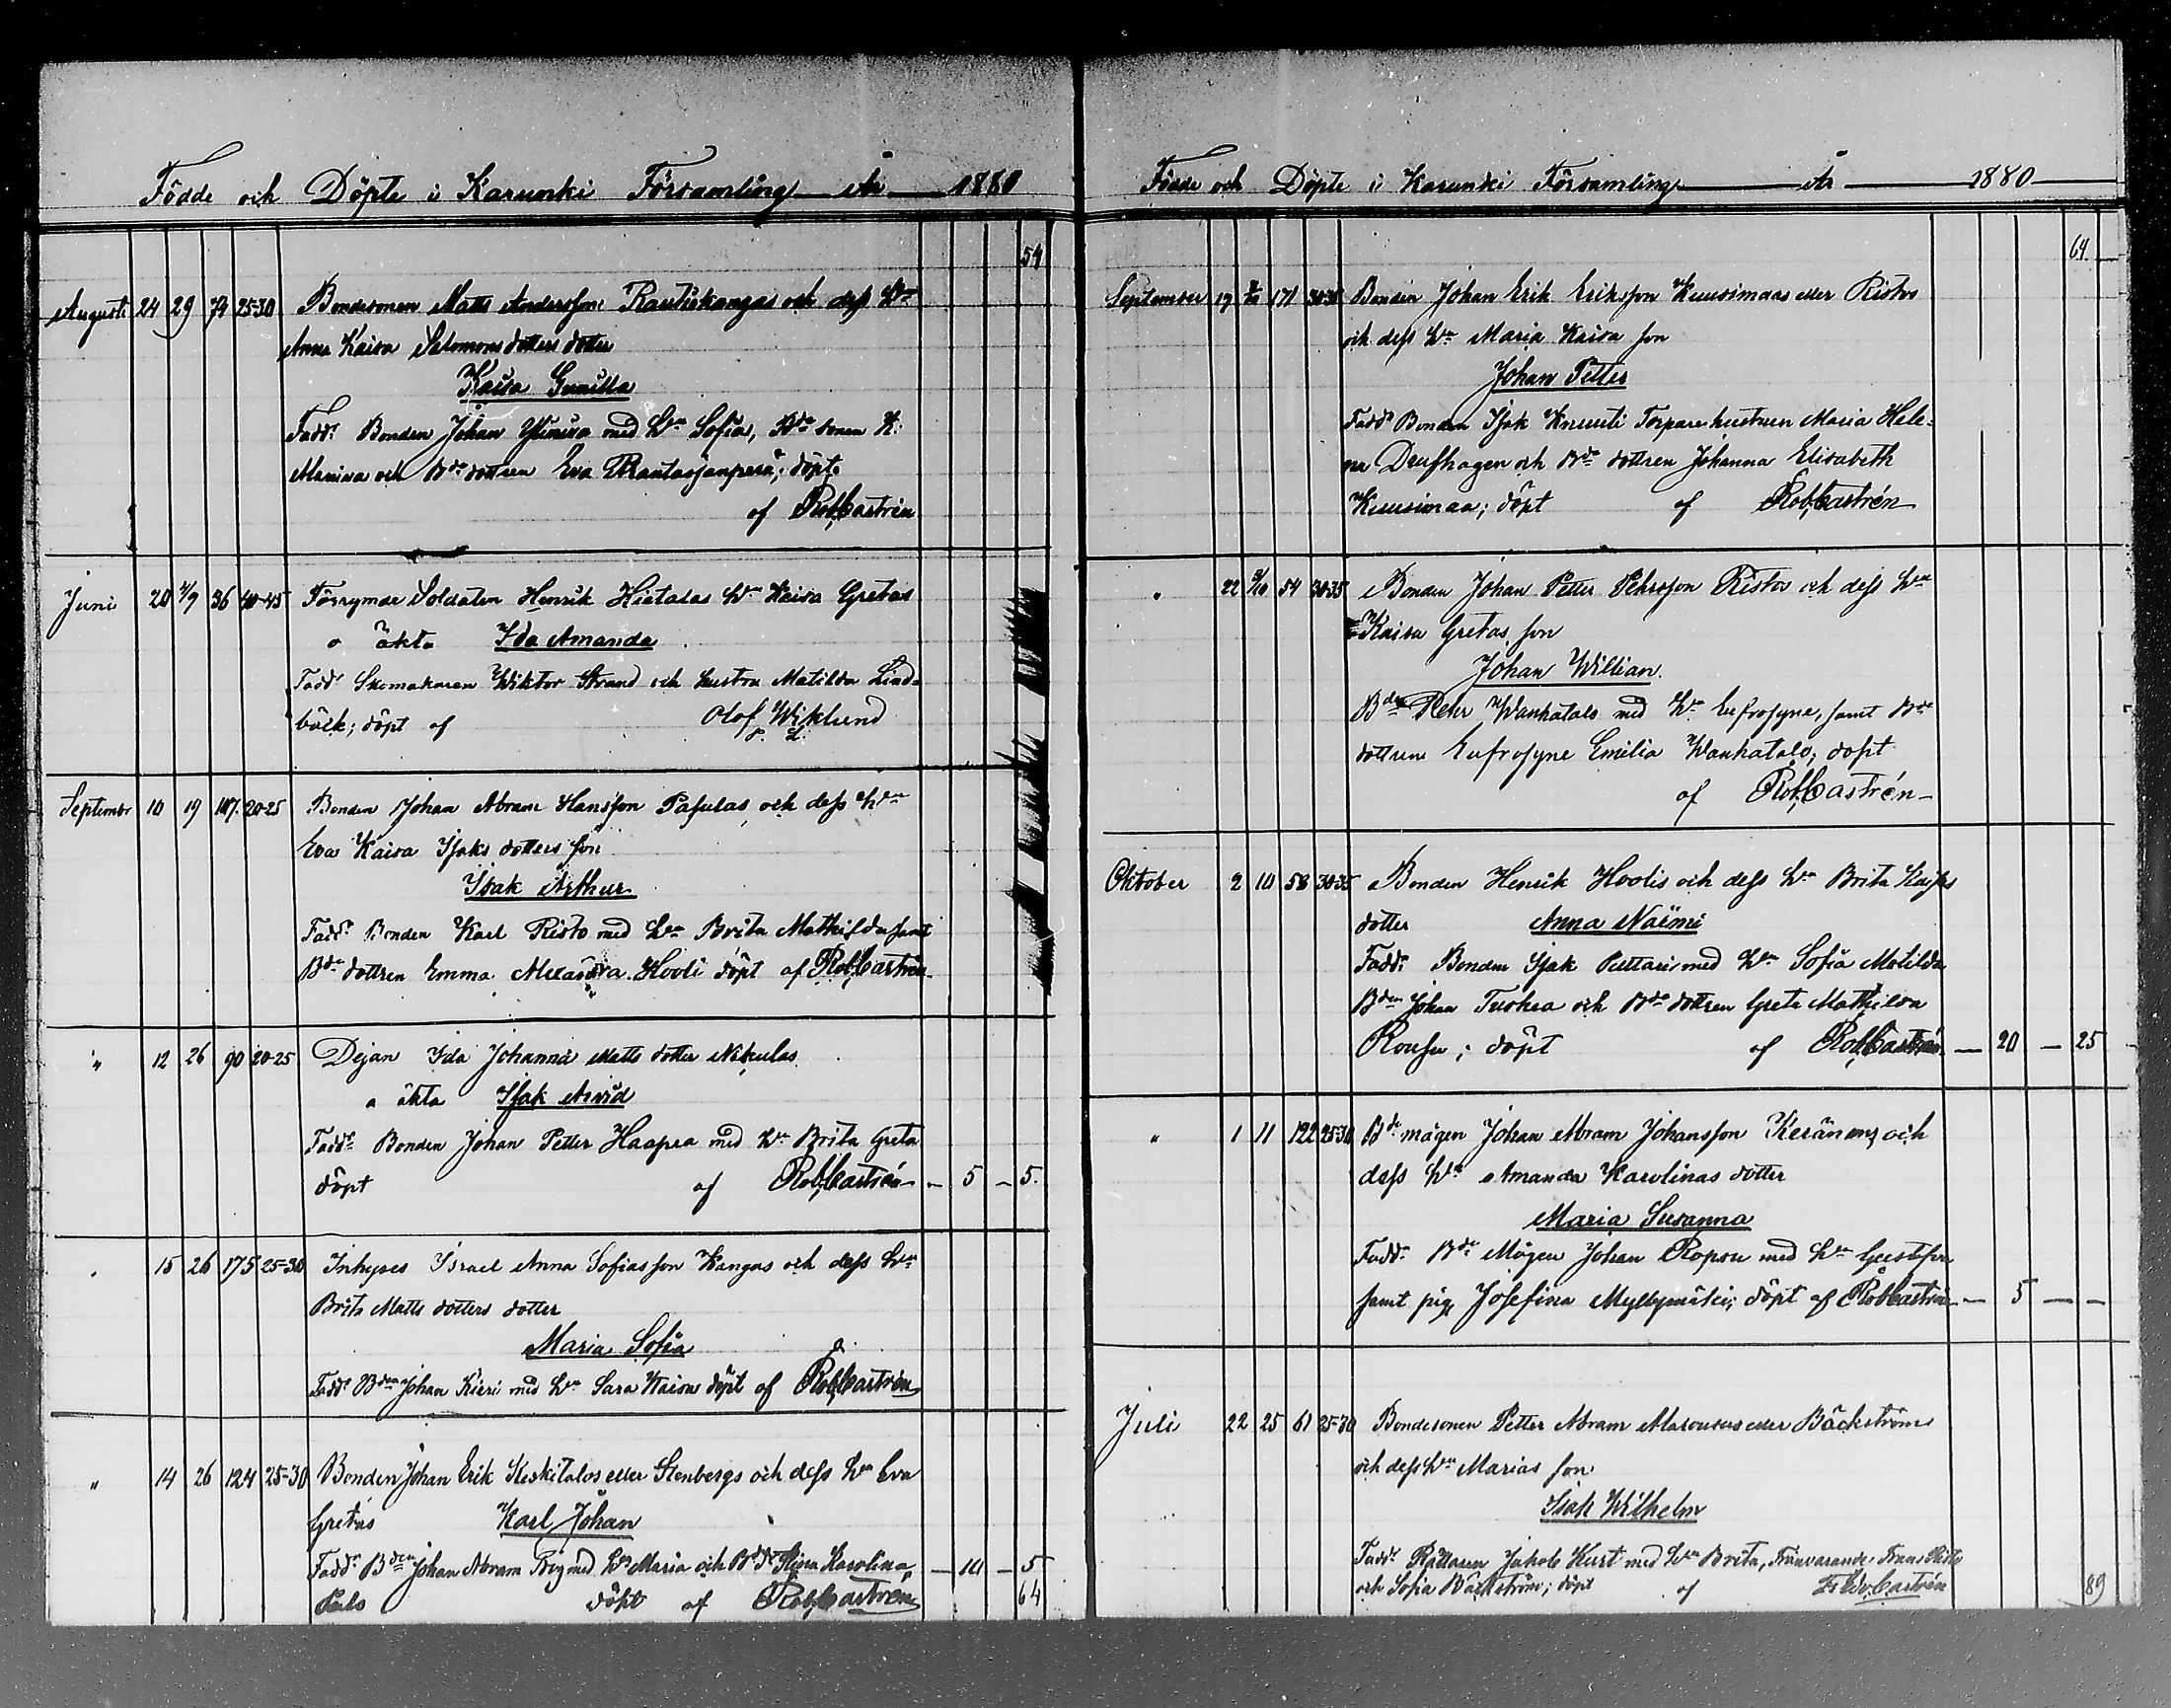 Födde och Döpte i Karunki Församling År 1880
54
Augusti 24 29 74 25-30 Bondesonen Matts Anderssons Rautiskangas och dess Hu
Anna Kaisa Salomons dotters dotter
Kaisa Gunilla
Fadd: Bonden Johan med Hu Sofia, Bde sonen H:
och Bde dottren Eva Rantasjanperä; döpt
af Rob Castrén
Juni 20 4/9 36 40-45 Förrymde Soldaten Henrik Hietalas Hu Kaisa Gretas
o äkta Ida Amanda
Fadd: Skomakaren Wiktor Strand och hustru Matilda Lind-
bäck; döpt af Olof Wiklund
Septembr 10 19 107. 20-25 Bonden Johan Abram Hansson Pasulas och dess Hu
Eva Kaisa Isaks dotters son
Isak Arthur
Fadd: Bonden Karl Risto med Hu Brita Mathilda samt
Bde dottren Emma Alexandra Hooli döpt af Rob Castrén
" 12 26 90 20-25 Dejan Ida Johanna Matts dotter Nikulas
o äkta Isak Arvid
Fadd: Bonden Johan Petter Haapea med Hu Brita Greta
döpt af Rob Castrén — 5 — 5.
" 15 26 175 25-30 Inhyses Israel Anna Sofiasson Kangas och dess Hu
Brita Matts dotters dotter
Maria Sofia
Fadd: Bden Johan Kieri med Hu Sara Kaisa döpt af Rob Castrén
" 14 26 124 25-30 Bonden Johan Erik Keskitalos eller Stenbergs och dess Hu Eva
Gretas Karl Johan
Fadd: Bden Johan Abram med Hu Maria och Bde dr Stina Karolina — 10 — 5
Palo döpt af Rob Castrén 64
Födde och Döpte i Karunki Församling År 1880
64.
September 19 3/10 171 30-35 Bonden Johan Erik Eriksson Kuusimaas eller Ristos
och dess Hu Maria Kaisa son
Johan Petter
Fadd: Bonden Isak Knuuti Torparehustrun Maria Hele-
na Drufhagen och Bde dottren Johanna Elisabeth
Kuusimaa; döpt af Rob Castrén
" 22 3/10 54 30-35 Bonden Johan Petter Pehrsson Ristos och dess Hu
Kaisa Gretas son
Johan Willian.
Bden Pehr Wanhatalo med Hu Eufrosyne, samt Bde
dottren Eufrosyne Emilia Wanhatalo; döpt
af Rob Castrén
Oktober 2 10 58 30-35 Bonden Henrik Hoolis och dess Hu Brita Kaisas
dotter Anna Naëmi
Fadd: Bonden Isak Puttari med Hu Sofia Matilda
Bden Johan Tuohea och Bde dottren Greta Mathilda
Roufu; döpt af Rob Castrén — 20 — 25
" 1 11 122 25-30 Bde mågen Johan Abram Johansson Keränens och
dess Hu Amanda Karolinas dotter
Maria Susanna
Fadd: Bde Mågen Johan Ropsu med Hu
samt pig. Josefina Myllymäki; döpt af Rob Castrén — 5 — —
Juli 22 25 61 25-30 Bondesonen Petter Abram eller Bäckströms
och dess Hu Marias son
Isak Wilhelm
Fadd: Rättaren Jakob Kurt med Hu Brita, Frånvarande Frans Risto
och Sofia Bäckström; döpt af Castrén 89